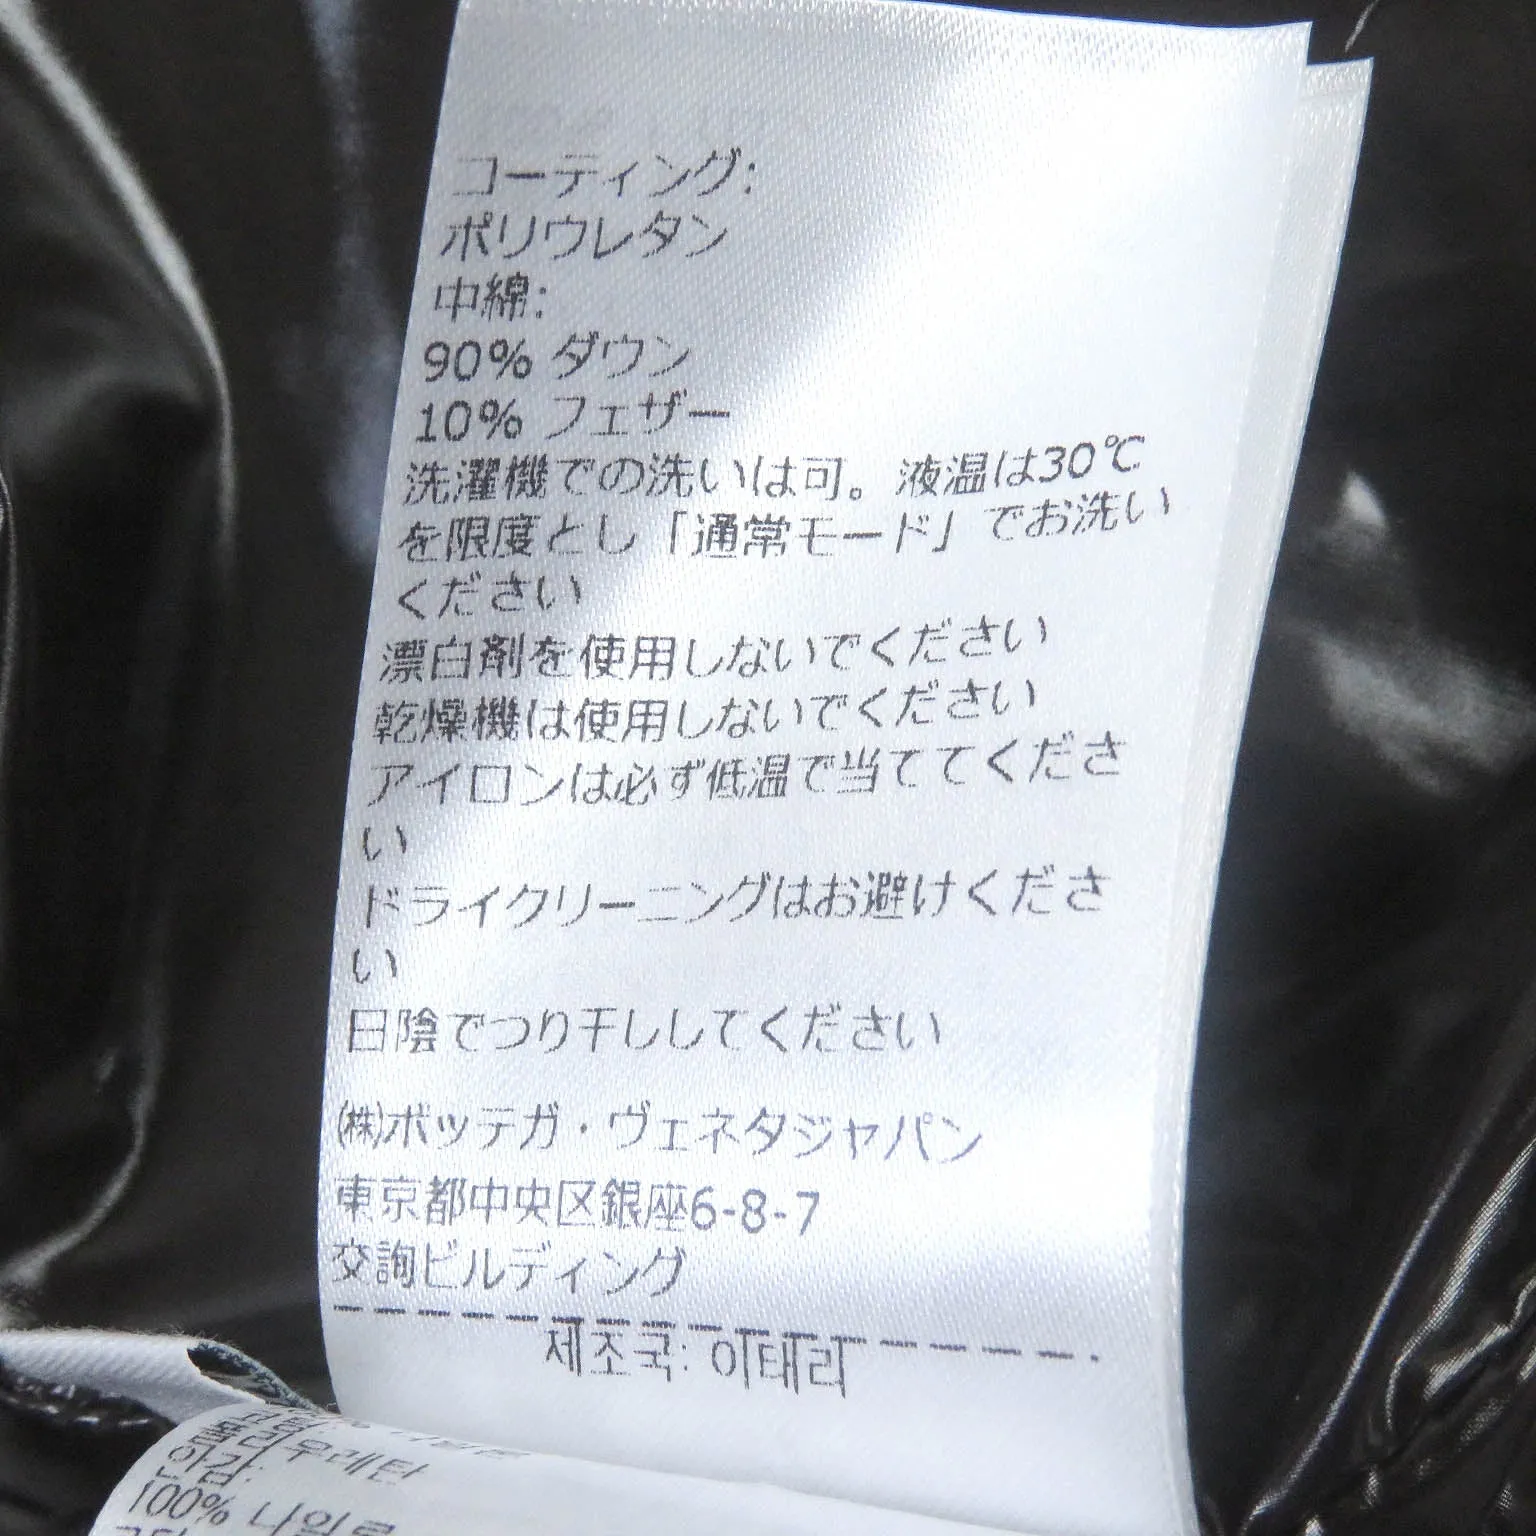 コーティング:
ポリウレタン
中綿:
90% ダウン
10% フェザー
洗濯機での洗いは可。液温は30℃
を限度とし「通常モード」でお洗い
ください
漂白剤を使用しないでください
乾燥機は使用しないでください
アイロンは必ず低温で当ててくださ
い
ドライクリーニングはお避けくださ
い
日陰でつり干ししてください
㈱ボッテガ・ヴェネタジャパン
東京都中央区銀座6-8-7
交詢ビルディング
제조국: 이태리
폴리우레탄
안감:
100% 나일론